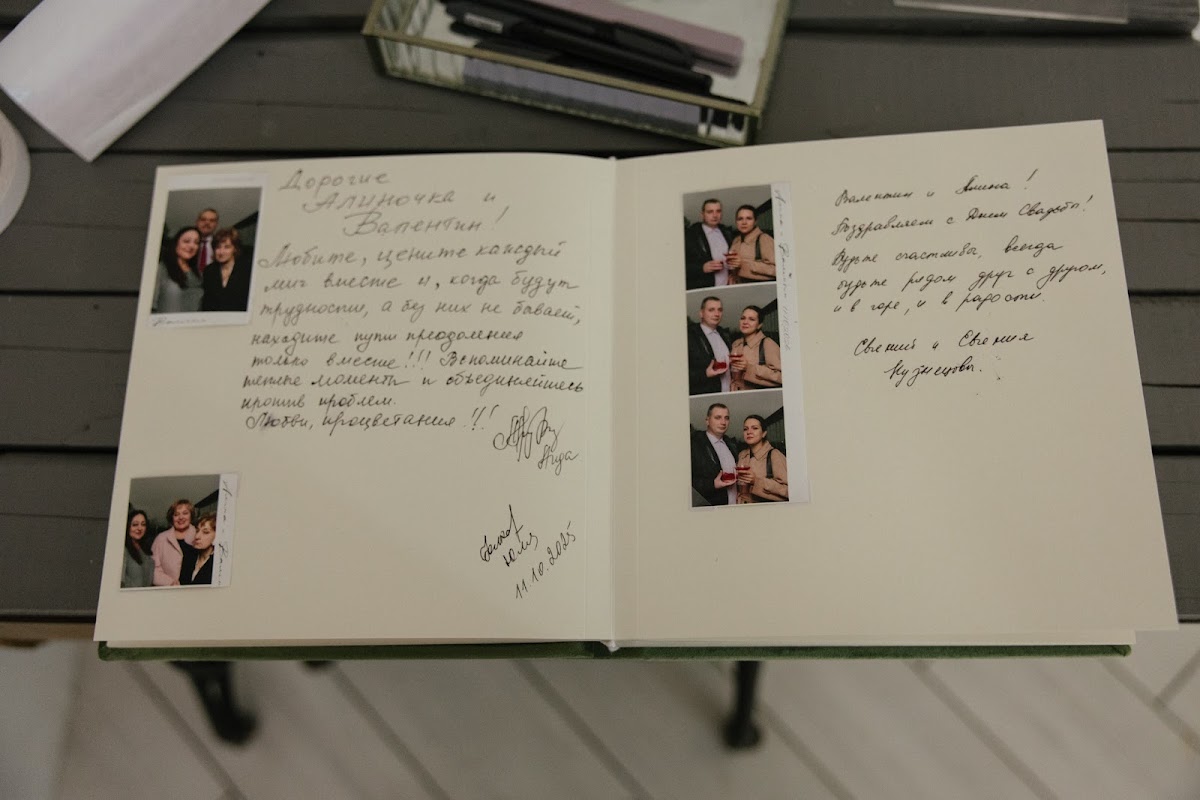 Дорогие
Алиночка и
Валентин!
Любите, цените каждый
миг вместе и, когда будут
трудности, а без них не бывает,
находите пути преодоления
только вместе!!! Вспоминайте
теплые моменты и объединяйтесь
против проблем.
Любви, процветания!!!
Юля
11.10.2025
Валентин и Алина!
Поздравляем с Днем Свадьбы!
Будьте счастливы, всегда
будьте рядом друг с другом,
и в горе, и в радости.
Евгений и Евгения
Кузнецовы.